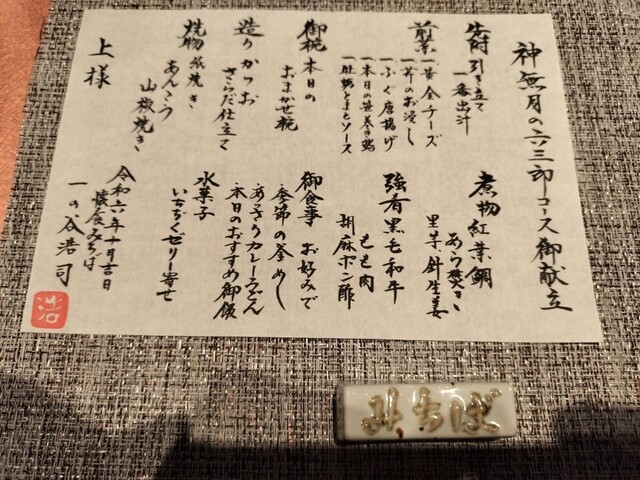 神無月の六三郎コース御献立
先附 引き立て
一番出汁
前菜 一黄金チーズ
一芹のお浸し
一ふぐ唐揚げ
一本日の笹巻き鮨
一肚鶏とまとソース
御椀 本日の
おまかせ椀
造り かつお
さらだ仕立て
焼物 瓜焼き
あんこう
山椒焼き
上様
煮物 紅葉鯛
あら焚き
里芋 針生姜
強肴 黒毛和牛
もも肉
胡麻ポン酢
御食事 お好みで
季節の釜めし
あっさりカレーうどん
本日のおすすめ御飯
水菓子
いちじくゼリー寄せ
令和六年十月吉日
懐食みちば
一の谷浩司
みちば